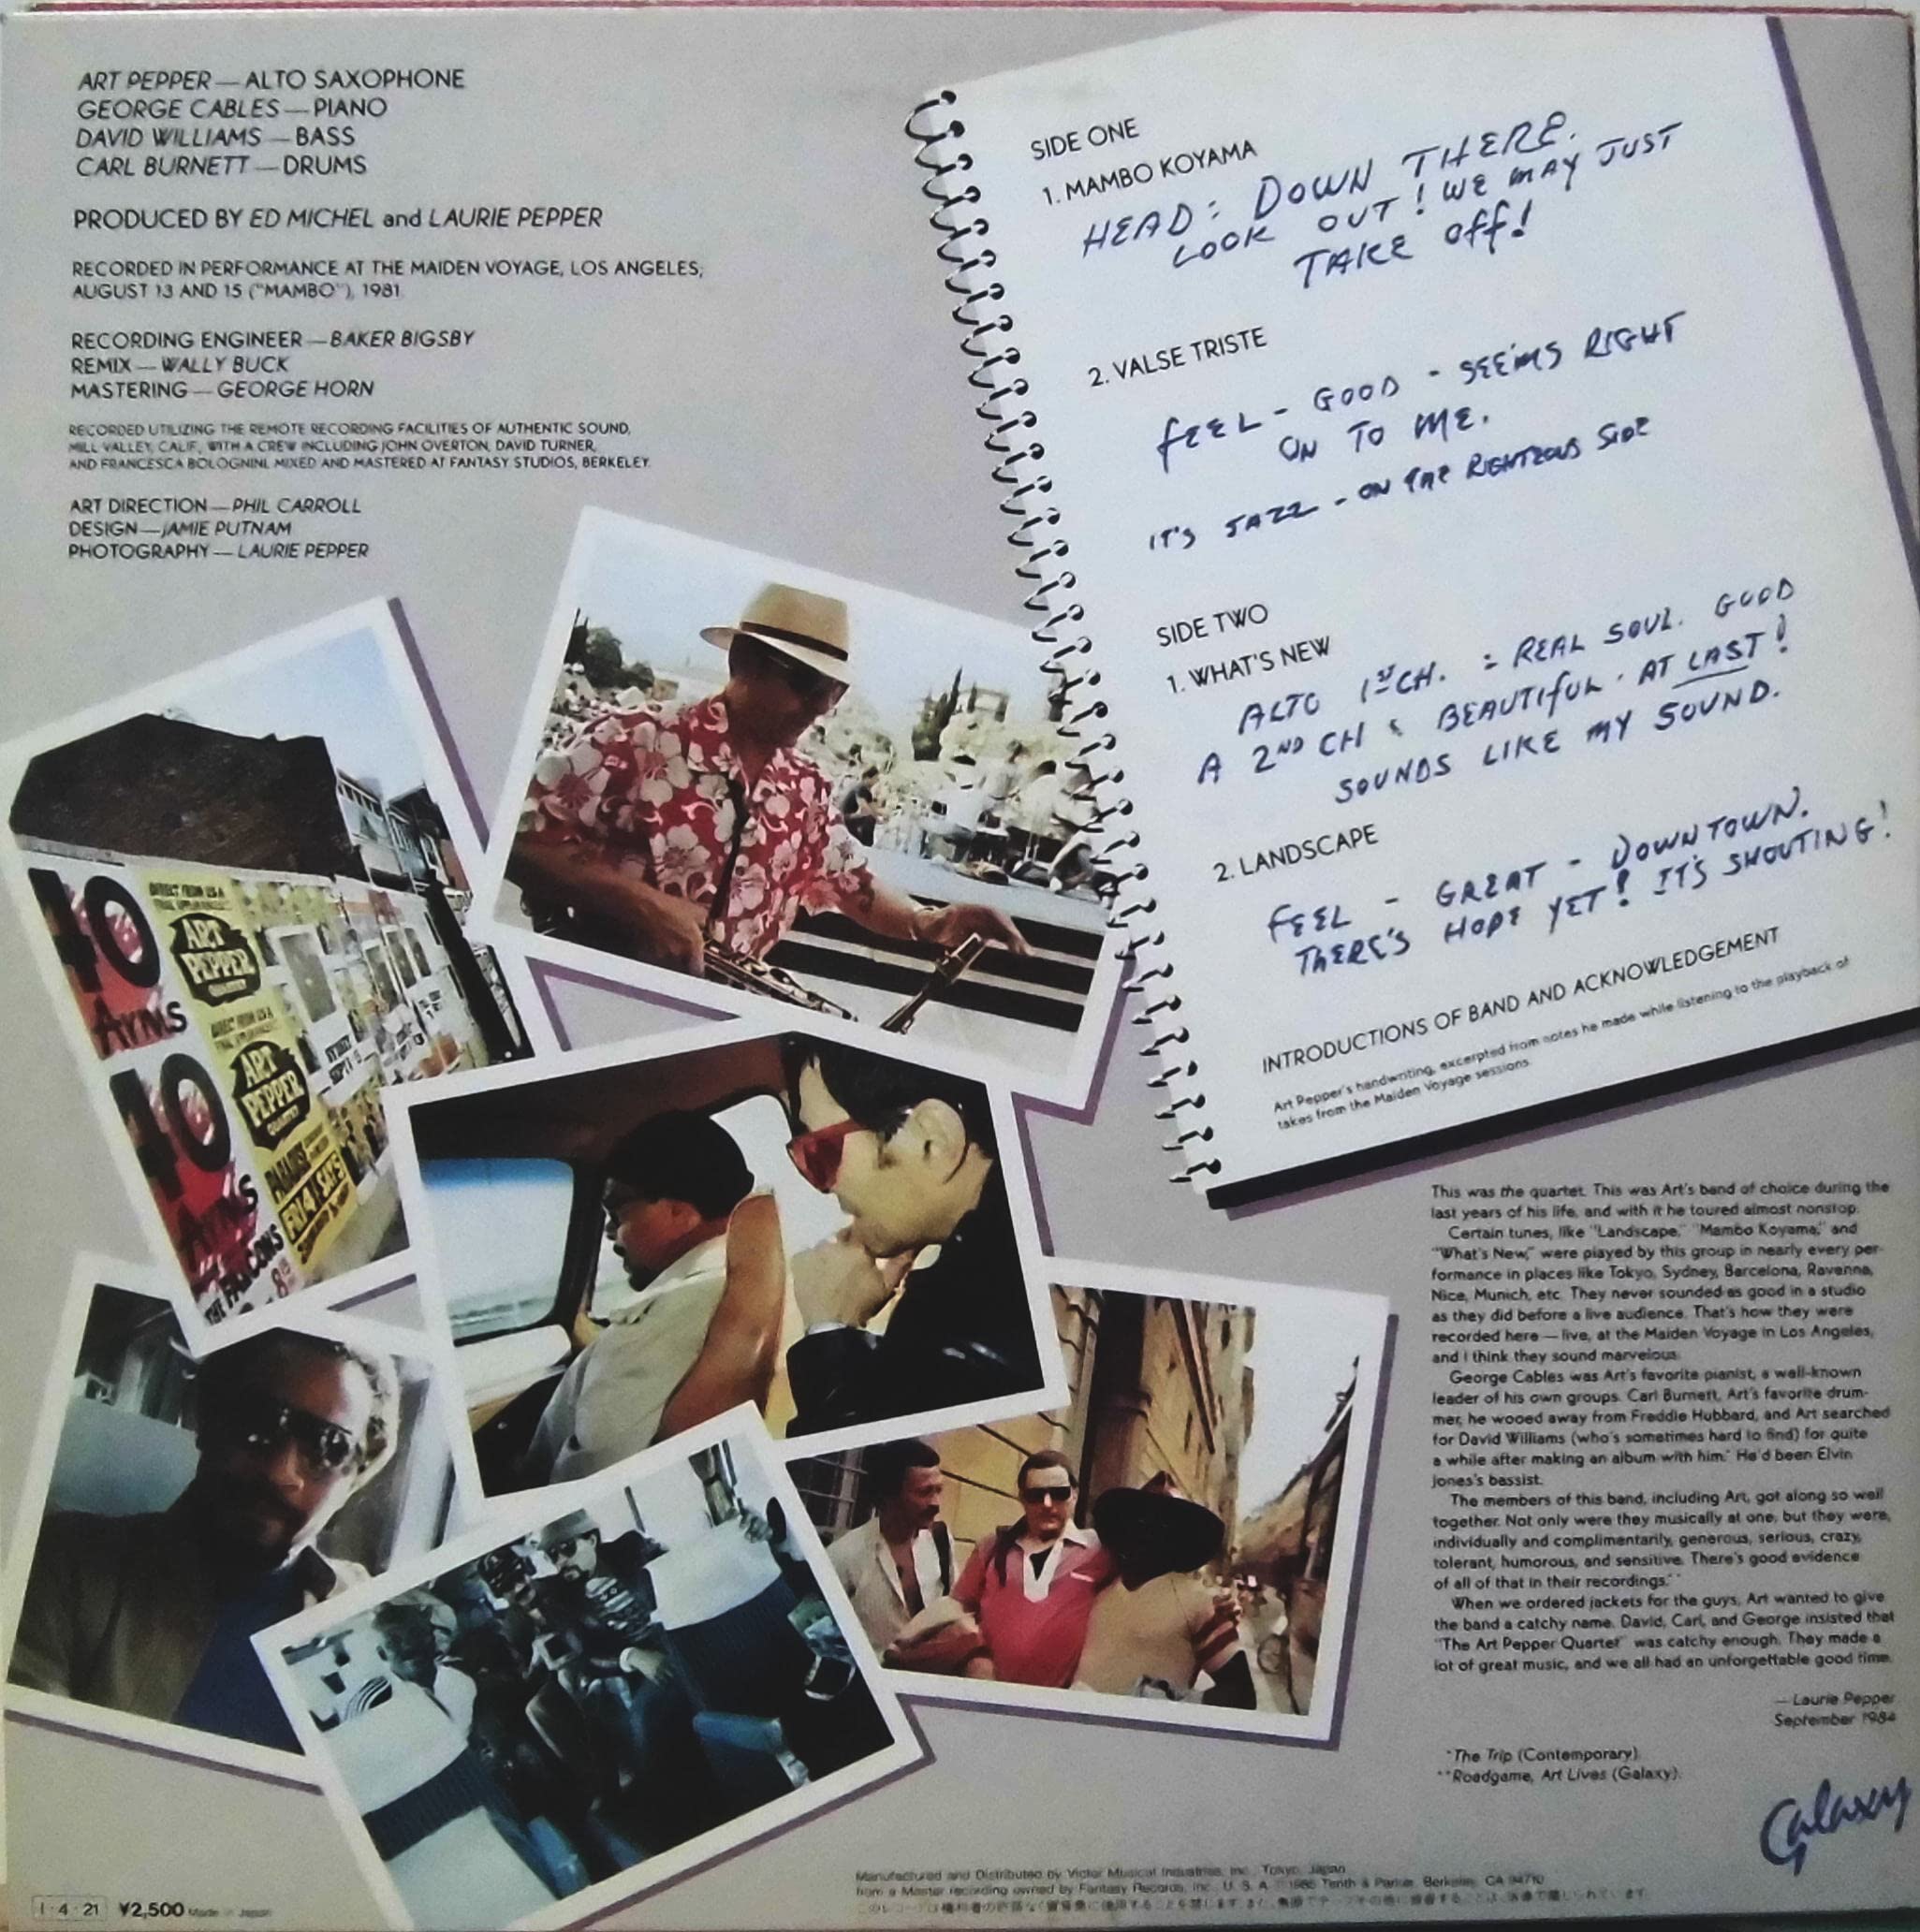 ART PEPPER — ALTO SAXOPHONE
GEORGE CABLES — PIANO
DAVID WILLIAMS — BASS
CARL BURNETT — DRUMS
PRODUCED BY ED MICHEL and LAURIE PEPPER
RECORDED IN PERFORMANCE AT THE MAIDEN VOYAGE, LOS ANGELES;
AUGUST 13 AND 15 ("MAMBO"), 1981.
RECORDING ENGINEER — BAKER BIGSBY
REMIX — WALLY BUCK
MASTERING — GEORGE HORN
RECORDED UTILIZING THE REMOTE RECORDING FACILITIES OF AUTHENTIC SOUND,
MILL VALLEY, CALIF., WITH A CREW INCLUDING JOHN OVERTON, DAVID TURNER,
AND FRANCESCA BOLOGNINI. MIXED AND MASTERED AT FANTASY STUDIOS, BERKELEY.
ART DIRECTION — PHIL CARROLL
DESIGN — JAMIE PUTNAM
PHOTOGRAPHY — LAURIE PEPPER
SIDE ONE
1. MAMBO KOYAMA
HEAD: DOWN THERE.
LOOK OUT! WE MAY JUST
TAKE Off!
2. VALSE TRISTE
fEEL - GOOD - SEEMS RIGHT
ON TO ME.
IT'S JAZZ - ON THE RIGHTEOUS SIDE
SIDE TWO
1. WHAT'S NEW
ALTO 1ST CH. = REAL SOUL. GOOD
A 2ND CH : BEAUTIfUL. AT LAST!
SOUNDS LIKE MY SOUND.
2. LANDSCAPE
fEEL - GREAT - DOWNTOWN.
THERE'S HOPE YET! IT'S SHOUTING!
INTRODUCTIONS OF BAND AND ACKNOWLEDGEMENT
Art Pepper's handwriting, excerpted from notes he made while listening to the playback of
takes from the Maiden Voyage sessions.
10
AYMS
DIRECT FROM USA
ART
PEPPER
10
AYMS
DIRECT FROM USA
ART
PEPPER
PARADISE
FRI 4 & SAT 5
THE FALCONS
SYDNEY
SEPT
This was the quartet. This was Art's band of choice during the
last years of his life, and with it he toured almost nonstop.
Certain tunes, like "Landscape," "Mambo Koyama," and
"What's New," were played by this group in nearly every per-
formance in places like Tokyo, Sydney, Barcelona, Ravenna,
Nice, Munich, etc. They never sounded as good in a studio
as they did before a live audience. That's how they were
recorded here — live, at the Maiden Voyage in Los Angeles,
and I think they sound marvelous.
George Cables was Art's favorite pianist, a well-known
leader of his own groups. Carl Burnett, Art's favorite drum-
mer, he wooed away from Freddie Hubbard, and Art searched
for David Williams (who's sometimes hard to find) for quite
a while after making an album with him.* He'd been Elvin
Jones's bassist.
The members of this band, including Art, got along so well
together. Not only were they musically at one, but they were,
individually and complimentarily, generous, serious, crazy,
tolerant, humorous, and sensitive. There's good evidence
of all of that in their recordings.**
When we ordered jackets for the guys, Art wanted to give
the band a catchy name. David, Carl, and George insisted that
"The Art Pepper Quartet" was catchy enough. They made a
lot of great music, and we all had an unforgettable good time.
— Laurie Pepper
September 1984
*The Trip (Contemporary).
**Roadgame, Art Lives (Galaxy).
Galaxy
Manufactured and Distributed by Victor Musical Industries, Inc., Tokyo, Japan
from a Master recording owned by Fantasy Records, Inc., U. S. A. 1985 Tenth & Parker, Berkeley, CA 94710
1·4·21 ¥2,500 Made in Japan